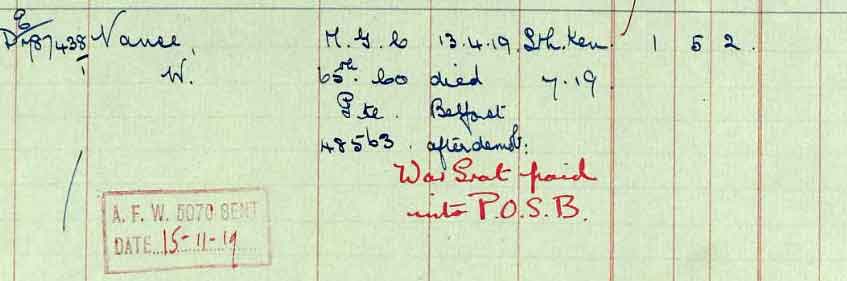 E
787438/1 Vance, M.G.C 13.4.19. Sth. Ken. 1 5 2.
W. 65th. Co died 7.19
Pte. Belfast
48563. after demob:
War Grat paid
into P.O.S.B.
A. F. W. 5070 SENT
DATE...15-11-19